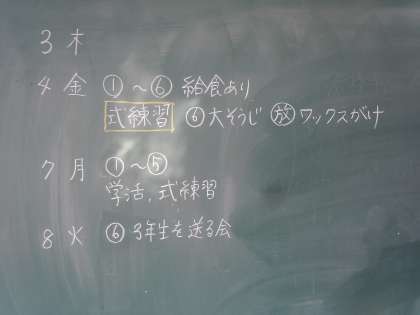 3 木
4 金 ①～⑥ 給食あり
式練習 ⑥大そうじ ㊋ワックスがけ
7 月 ①～⑤
学活、式練習
8 火 ⑥ 3年生を送る会